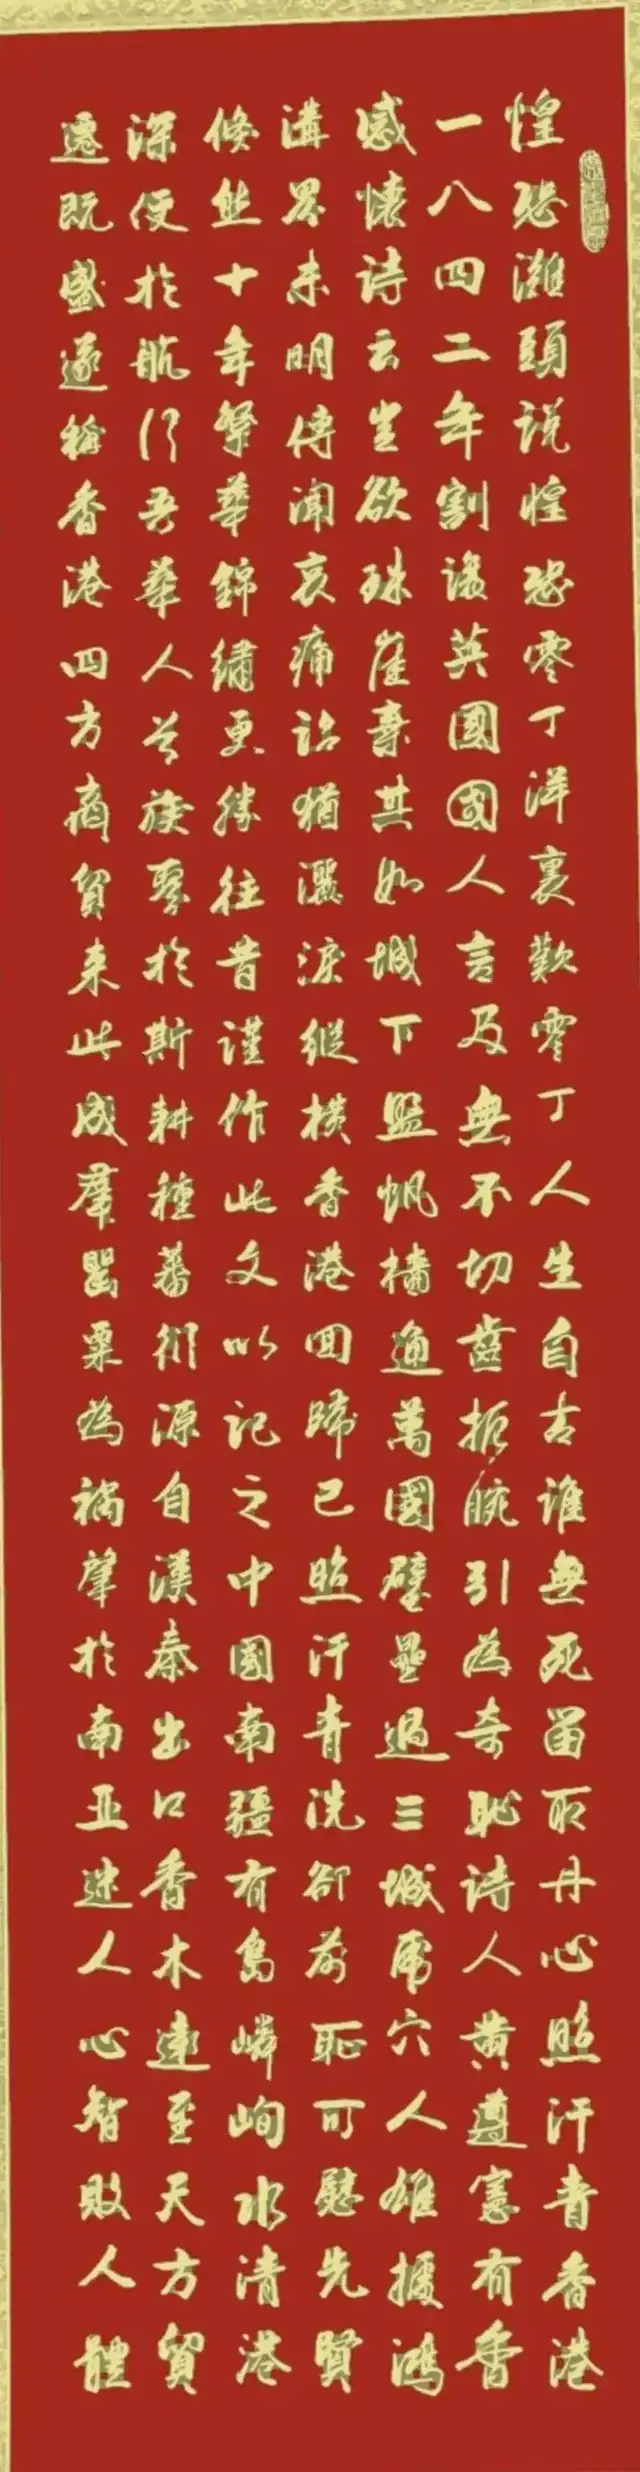 惶恐灘頭說惶恐零丁洋裏歎零丁人生自古誰無死留取丹心照汗青香港
一八四二年割讓英國國人言及無不切齒扼腕引為奇恥詩人黃遵憲有香
感懷詩云豈欲珠崖棄其如城下盟帆檣通萬國壁壘過三城虎穴人雄據鴻
溝界未明傳聞哀痛詔猶灑淚縱橫香港回歸已照汗青洗卻前恥可慰先賢
倏然十年繁華錦繡更勝往昔謹作此文以記之中國南疆有島嶙峋水清港
深便於航行吾華人首族聚於斯耕種蕃衍源自漢秦出口香木遠至天方貿
遷既盛遂稱香港四方商貿來此成羣罌粟為禍肇於南亞迷人心智敗人體